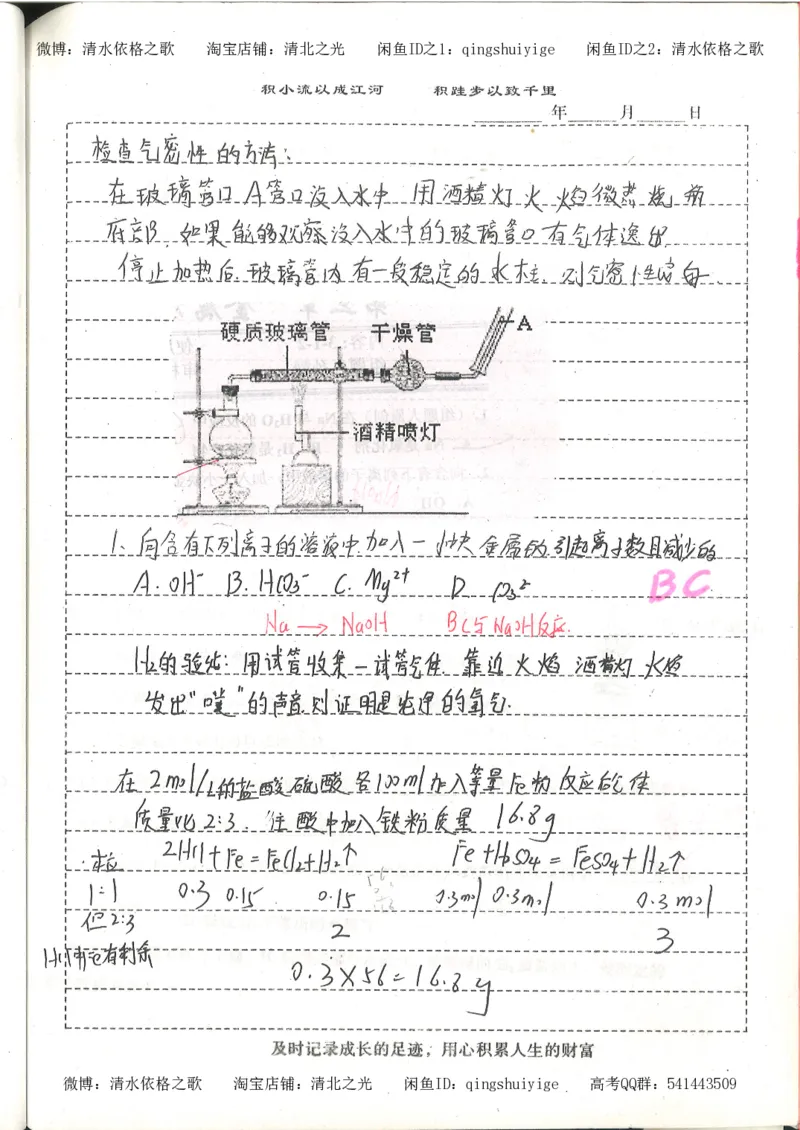 微博：清水依格之歌 淘宝店铺：清北之光 闲鱼ID之1：qingshuiyige 闲鱼ID之2：清水依格之歌
积小流以成江河 积跬步以致千里
年 月 日
检查气密性的方法：
在玻璃管口A管口没入水中 用酒精灯火焰微热烧瓶
底部 如果能够观察没入水中的玻璃管口有气体逸出
停止加热后 玻璃管内有一段稳定的水柱，则气密性良好
硬质玻璃管 干燥管 A
酒精喷灯
1、向含有下列离子的溶液中加入一小块金属钠 引起离子数目减少的
A. OH⁻ B. HCO₃⁻ C. Mg²⁺ D. CO₃²⁻
BC
Na → NaOH BC与NaOH反应.
H₂的验纯：用试管收集一试管气体 靠近火焰 酒精灯火焰
发出“噗”的声音则证明是纯净的氢气.
在2mol/L的盐酸硫酸各100ml加入等量Fe粉 反应后气体
质量比2:3. 往酸中加入铁粉质量 16.8g
本应 2HCl+Fe=FeCl₂+H₂↑ Fe+H₂SO₄=FeSO₄+H₂↑
1:1 0.3 0.15 0.15 0.3mol 0.3mol 0.3mol
但2:3 2 3
有剩余
0.3×56=16.8g
及时记录成长的足迹，用心积累人生的财富
微博：清水依格之歌 淘宝店铺：清北之光 闲鱼ID：qingshuiyige 高考QQ群：541443509